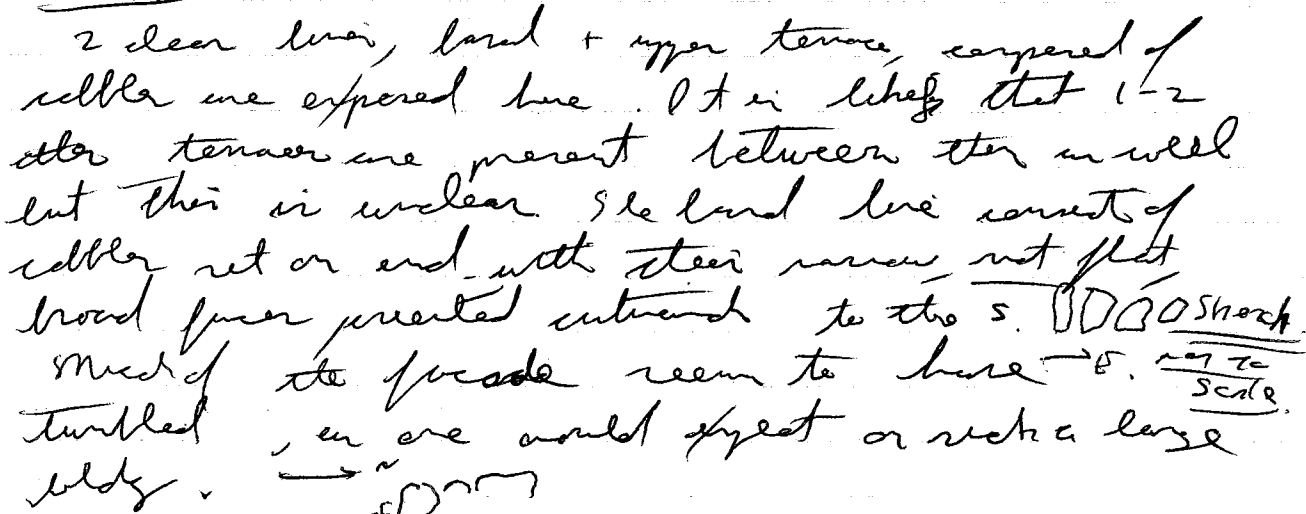 2 clear lines, basal + upper terrace, composed of
cobbles are exposed here. It is likely that 1-2
other terraces are present between them as well
but this is unclear. The basal line consists of
cobbles set on end with their narrow, not flat,
broad faces presented outwards to the S. Sketch
Much of the facade seems to have → E. not to
scale.
tumbled, as one would expect on such a large
bldg. → N